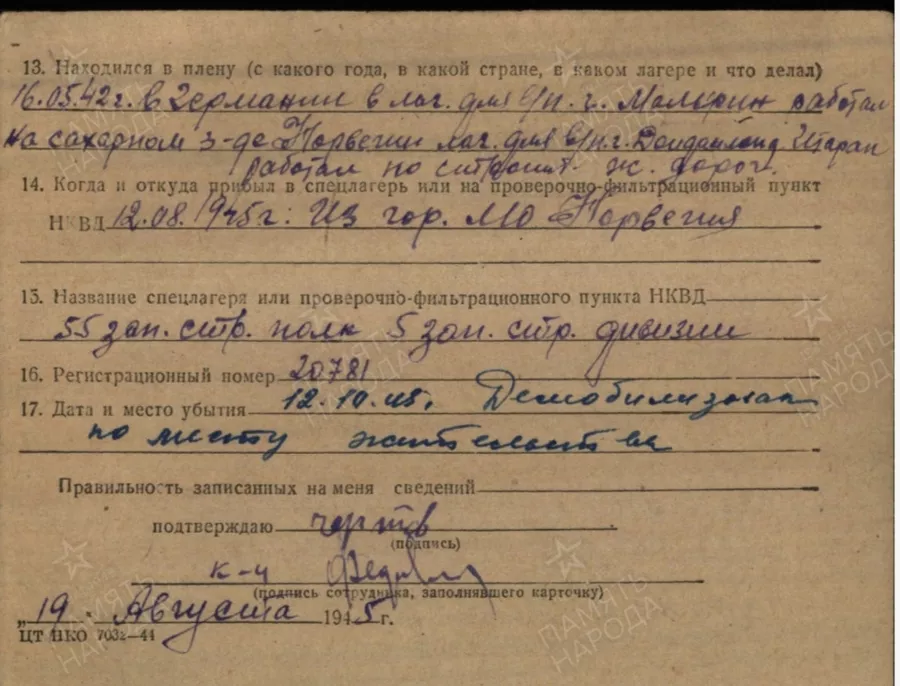 13. Находился в плену (с какого года, в какой стране, в каком лагере и что делал)
16.05.42 г. в Германии в лаг. для в/п. г. Мальхин работал
на сахарном з-де Норвегии лаг. для в/п. г.
работал по строит. ж. дорог.
14. Когда и откуда прибыл в спецлагерь или на проверочно-фильтрационный пункт
НКВД 12.08.1945 г. Из гор. МО Норвегия
15. Название спецлагеря или проверочно-фильтрационного пункта НКВД
55 зап. стр. полк 5 зап. стр. дивизии
16. Регистрационный номер 20781
17. Дата и место убытия 12.10.45. Демобилизован
по месту жительства
Правильность записанных на меня сведений
подтверждаю
(подпись)
к-н
(подпись сотрудника, заполнявшего карточку)
„19. Августа 1945 г.
ЦТ НКО 7032-44
ПАМЯТЬ НАРОДА